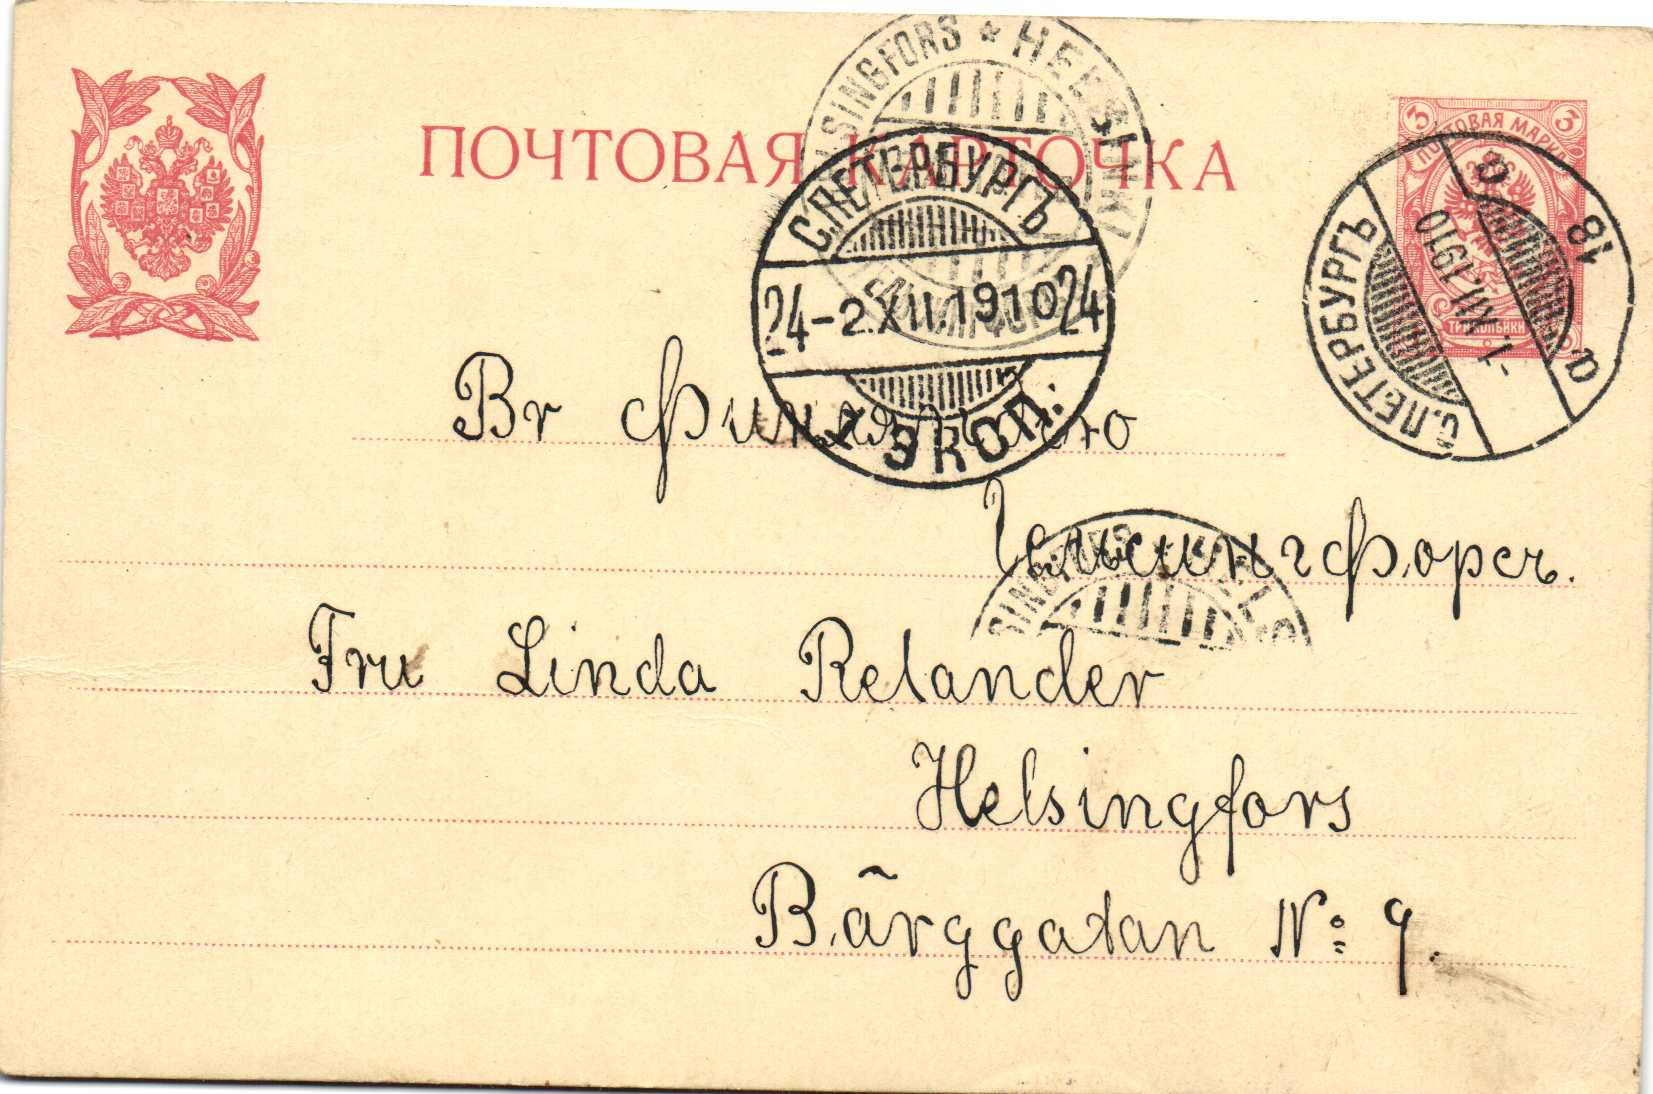 ПОЧТОВАЯ КАРТОЧКА
3 ПОЧТОВАЯ МАРКА 3
ТРИ КОПѢЙКИ
HELSINGFORS * HELSINKI
С.ПЕТЕРБУРГЪ
24 -2.XII.1910 24
1 ЭКСП.
С.ПЕТЕРБУРГЪ
-1.XII.1910
18 а
Въ Финляндію
Гельсингфорсъ.
SINGFORS HELS
Fru Linda Relander
Helsingfors
Bärggatan No 9.